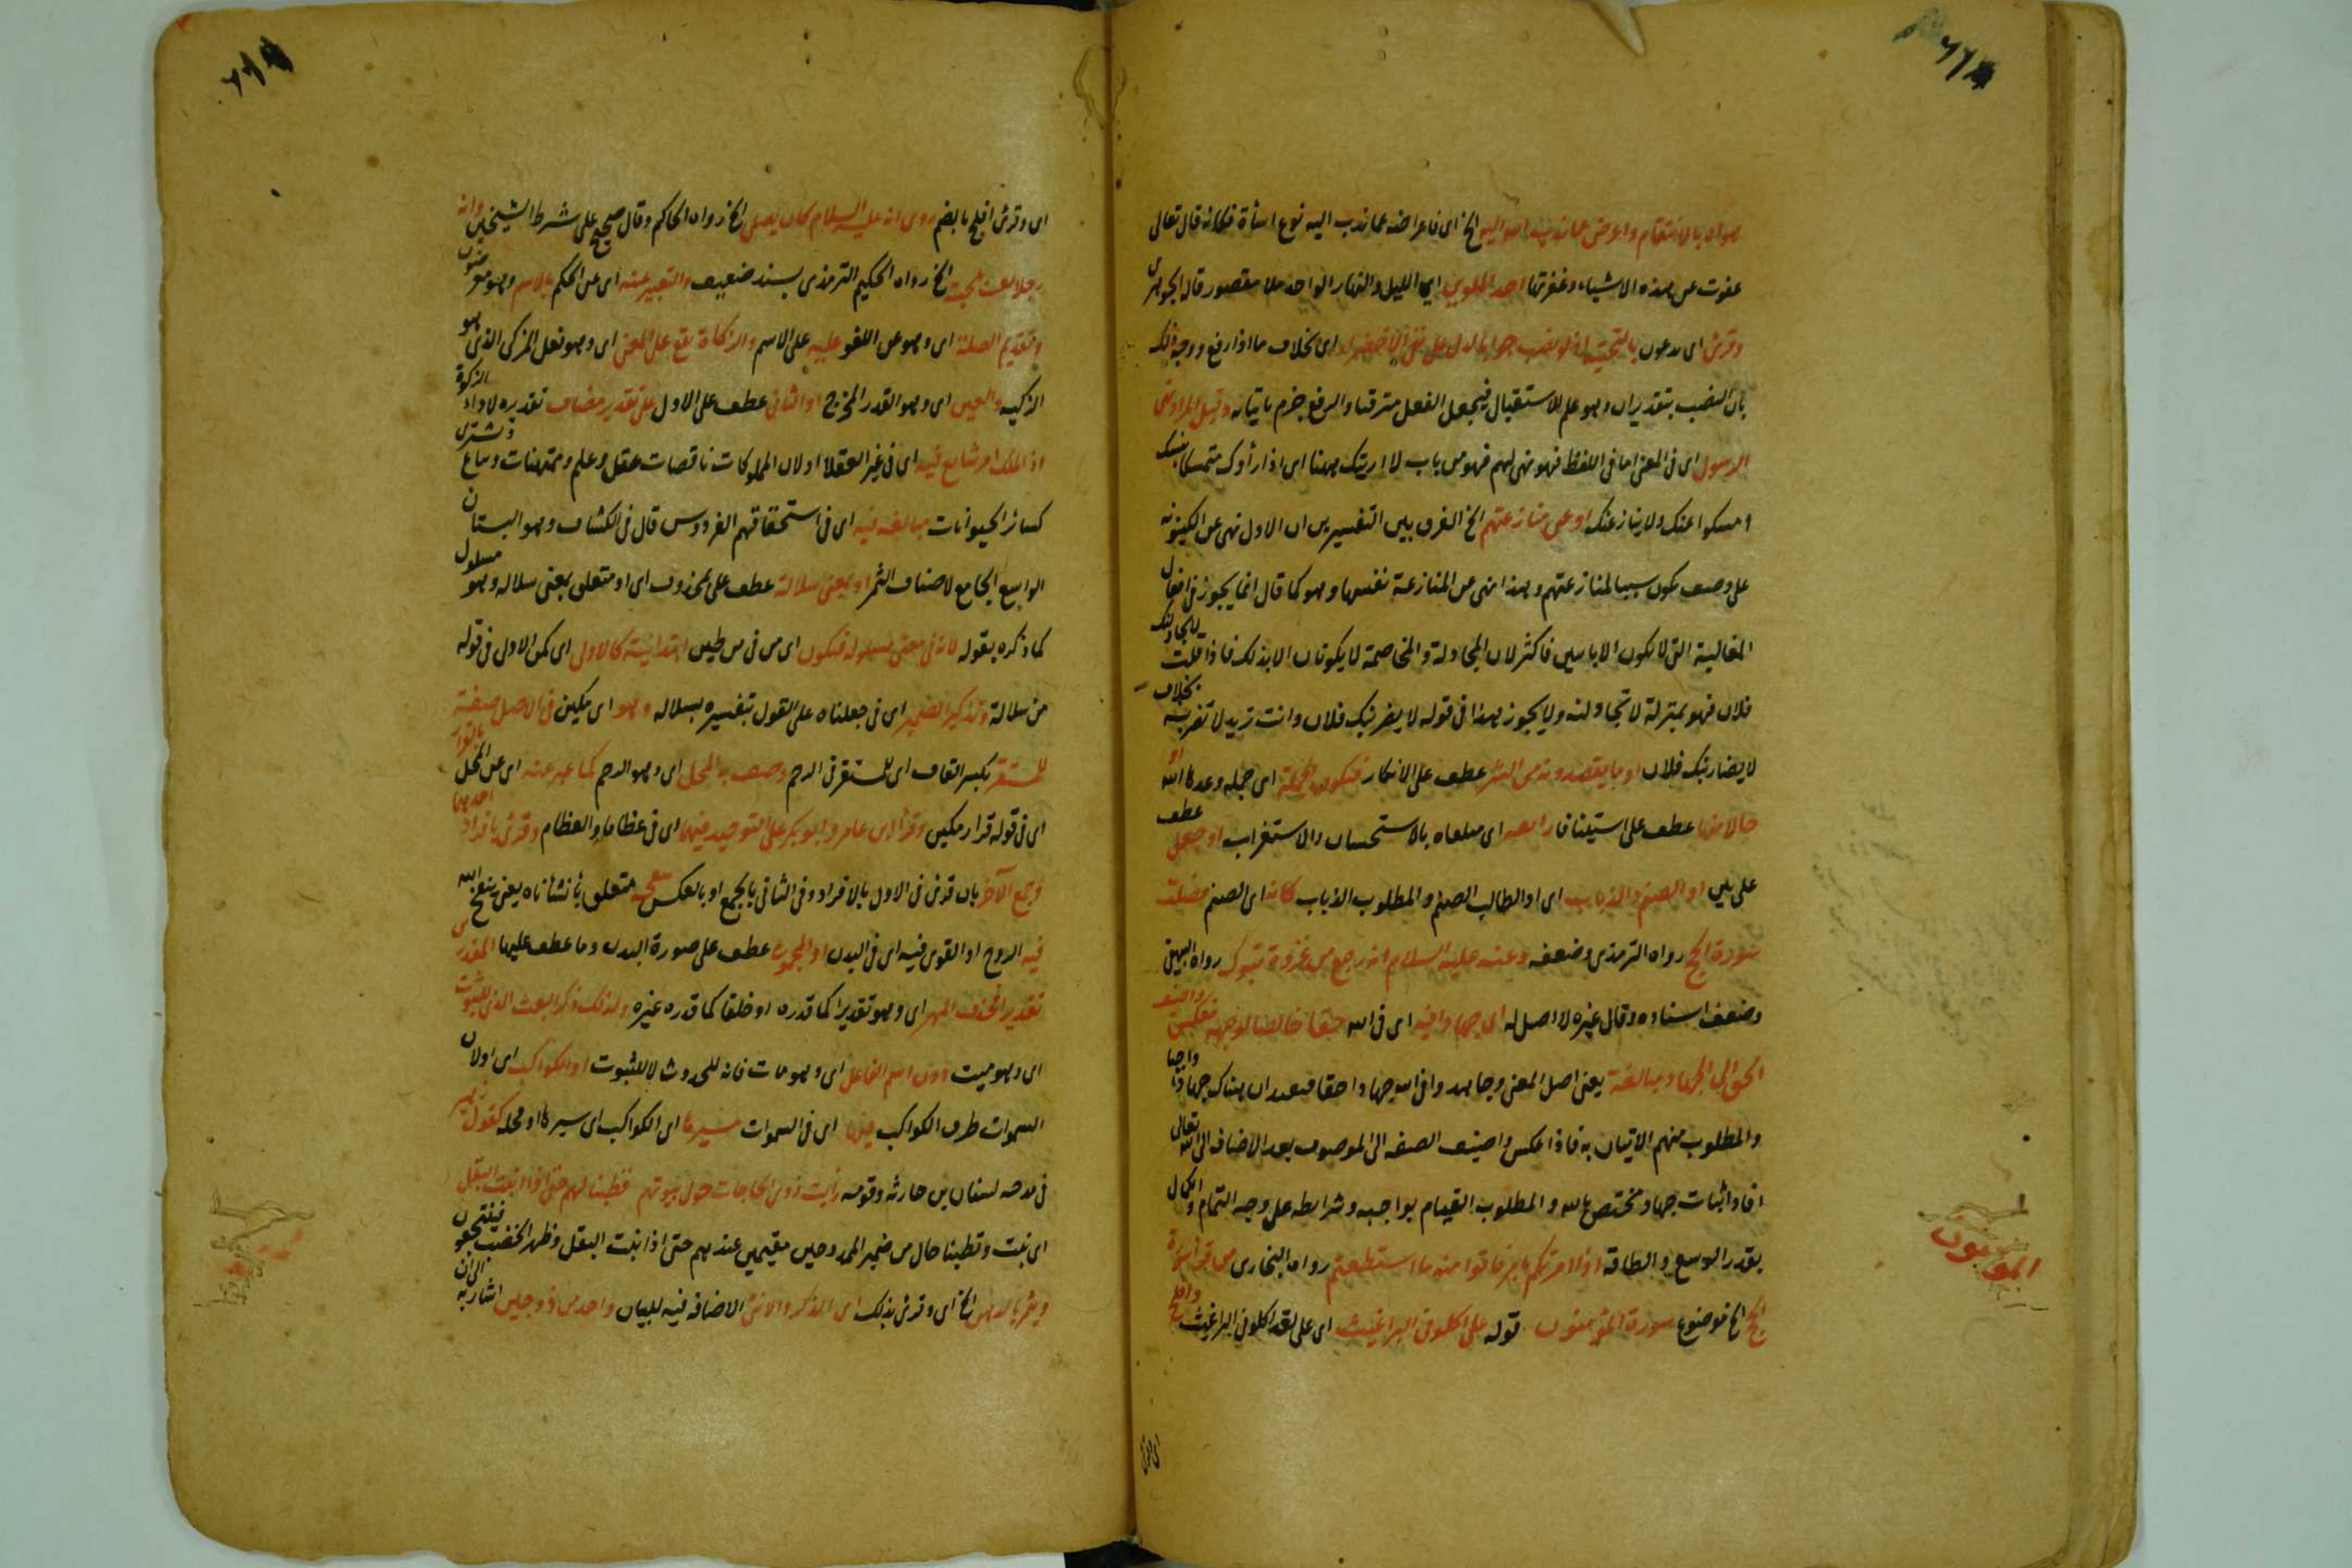 بالانتقام واعرض عما ندب الله اليه الخ اى فاعراضه عما ندب اليه نوع اساة فكانه قال تعالى
عفوت عن هذه الاشياء وغفرتها احد الملوين اى الليل والنهار الواحد ملا مقصور قاله الجوهرى
وقرئ اى يدعون بالتحتية اذ لو نصب جوابا لدل على نفى الاخضرار اى بخلاف ما اذا رفع ووجه ذلك
بان النصب بتقدير ان وهو علم للاستقبال فيجعل الفعل مترقبا والرفع جزم باتيانه وقيل المراد نهى
الرسول اى فى المعنى اما فى اللفظ فهو نهى لهم فهو من باب لا ارينك ههنا اى اذا رأوك متمسكا بنسك
امسكوا عنك ولا ينازعنك او عن منازعتهم الخ الفرق بين التفسيرين ان الاول نهى عن الكينونه
على وصف يكون سببا لمنازعتهم وهذا نهى عن المنازعة نفسها وهو كما قال انما يجوز فى افعال
المغالبة التى لا تكون الا باسمين فاكثر لان المجادلة والمخاصمة لا يكونان الا بذلك فاذا قلت لا يجادلنك
فلان فهو بمنزلة لا تجادلنه ولا يجوز هذا فى قوله لا يضربنك فلان وانت تريد لا تضربنه بخلاف
لا يضاربنك فلان او ما يقصدونه من الشر عطف على الانكار فتكون الجملة اى جملة وعدها الله او
حالا منها عطف على استينافا رابعه اى متلقاه بالاستحسان والاستغراب او جعل عطف
على بين او الصنم والذباب اى او الطالب الصنم والمطلوب الذباب كانه اى الصنم فضلت
سورة الحج رواه الترمذى وضعفه وعنه عليه السلام انه رجع من غزوة تبوك رواه البيهقى
وضعف اسناده وقال غيره لا اصل له اى جهادا فيه اى فى الله حقا خالصا لوجهه فعكس واضيف
الحق الى الجهاد مبالغة يعنى اصل المعنى وجاهدوا فى الله جهادا حقا فيفيد ان هناك جهادا واجبا
والمطلوب منهم الاتيان به فاذا عكس واضيف الصفه الى الموصوف بعد الاضافه الى الله تعالى
افاد اثبات جهاد مختص بالله والمطلوب القيام بواجبه وشرايطه على وجه التمام والكمال
بقدر الوسع والطاقة اذا امرتكم بامر فاتوا منه ما استطعتم رواه البخارى من قرأ سورة
الحج الخ موضوع سورة المؤمنون قوله على اكلونى البراغيث اى على لغة اكلونى البراغيث وافلح
المومنون
اى وقرئ افلح بالضم روى انه عليه السلام كان يصلى الخ رواه الحاكم وقال صحيح على شرط الشيخين وانه
رجلا يعبث بلحيته الخ رواه الحكيم الترمذى بسند ضعيف والتعبير عنه اى عن الحكم بالاسم وهو معرضون
وتقديم الصلة اى وهو عن اللغو عليه على الاسم والزكاة تقع على المعنى اى وهو فعل المزكى الذى هو
التزكيه والعين اى وهو القدر المخرج او الثانى عطف على الاول على تقدير مضاف تقديره لاداء الزكوة
اذ الملك امر شايع فيه اى فى غير العقلا او لان المملوكات ناقصات عقل وعلم وممتهنات وتباع وتشترى
كسائر الحيوانات مبالغة فيه اى فى استحقاقهم الفردوس قال فى الكشاف وهو البستان
الواسع الجامع لاصناف الثمر او بمعنى سلالة عطف على محذوف اى او متعلق بمعنى سلاله وهو مسلول
كما ذكره بقوله لانه فى معنى مسلولة فتكون اى من فى من طين ابتدائية كالاول اى كمن الاول فى قوله
من سلالة وتذكير الضمير اى فى جعلناه على القول بتفسيره بسلاله وهو اى مكين فى الاصل صفة
للمستقر بكسر القاف اى للمستقر فى الرحم وصف به المحل اى وهو الرحم كما عبر عنه اى عن المحل بالقرار
اى فى قوله قرار مكين وقرأ ابن عامر وابو بكر على التوحيد فيهما اى فى عظاما والعظام وقرئ بافراد احدهما
وجمع الآخر بان قرئ فى الاول بالافراد وفى الثانى بالجمع او بالعكس متعلق بانشأناه يعنى ينفخ الله
فيه الروح او القوى فيه اى فى البدن او المجموع عطف على صورة البدن وما عطف عليها المقدرين
تقديرا فحذف المميز اى وهو تقديرا كما قدره او خلقا كما قدره غيره ولذلك ذكر البعث الذى للثبوت
اى وهو ميت دون اسم الفاعل اى وهو مات فانه للحدوث لا للثبوت او الكواكب اى او لان
السموات طرق الكواكب فيها اى فى السموات مسيرها اى الكواكب اى سيرها او محله كقول زهير
فى مدحه لسنان بن حارثه وقومه رأيت ذوى الحاجات حول بيوتهم قطينا لهم حتى اذا انبت البقل
اى نبت وقطينا حال من ضمير الممدوحين مقيمين عندهم حتى اذا نبت البقل وظهر الخصب فينتجعون
ويثمر بالدهن الخ اى وقرئ بذلك اى الذكر والانثى الاضافة فيه للبيان واحد من زوجين اشار به الى ان